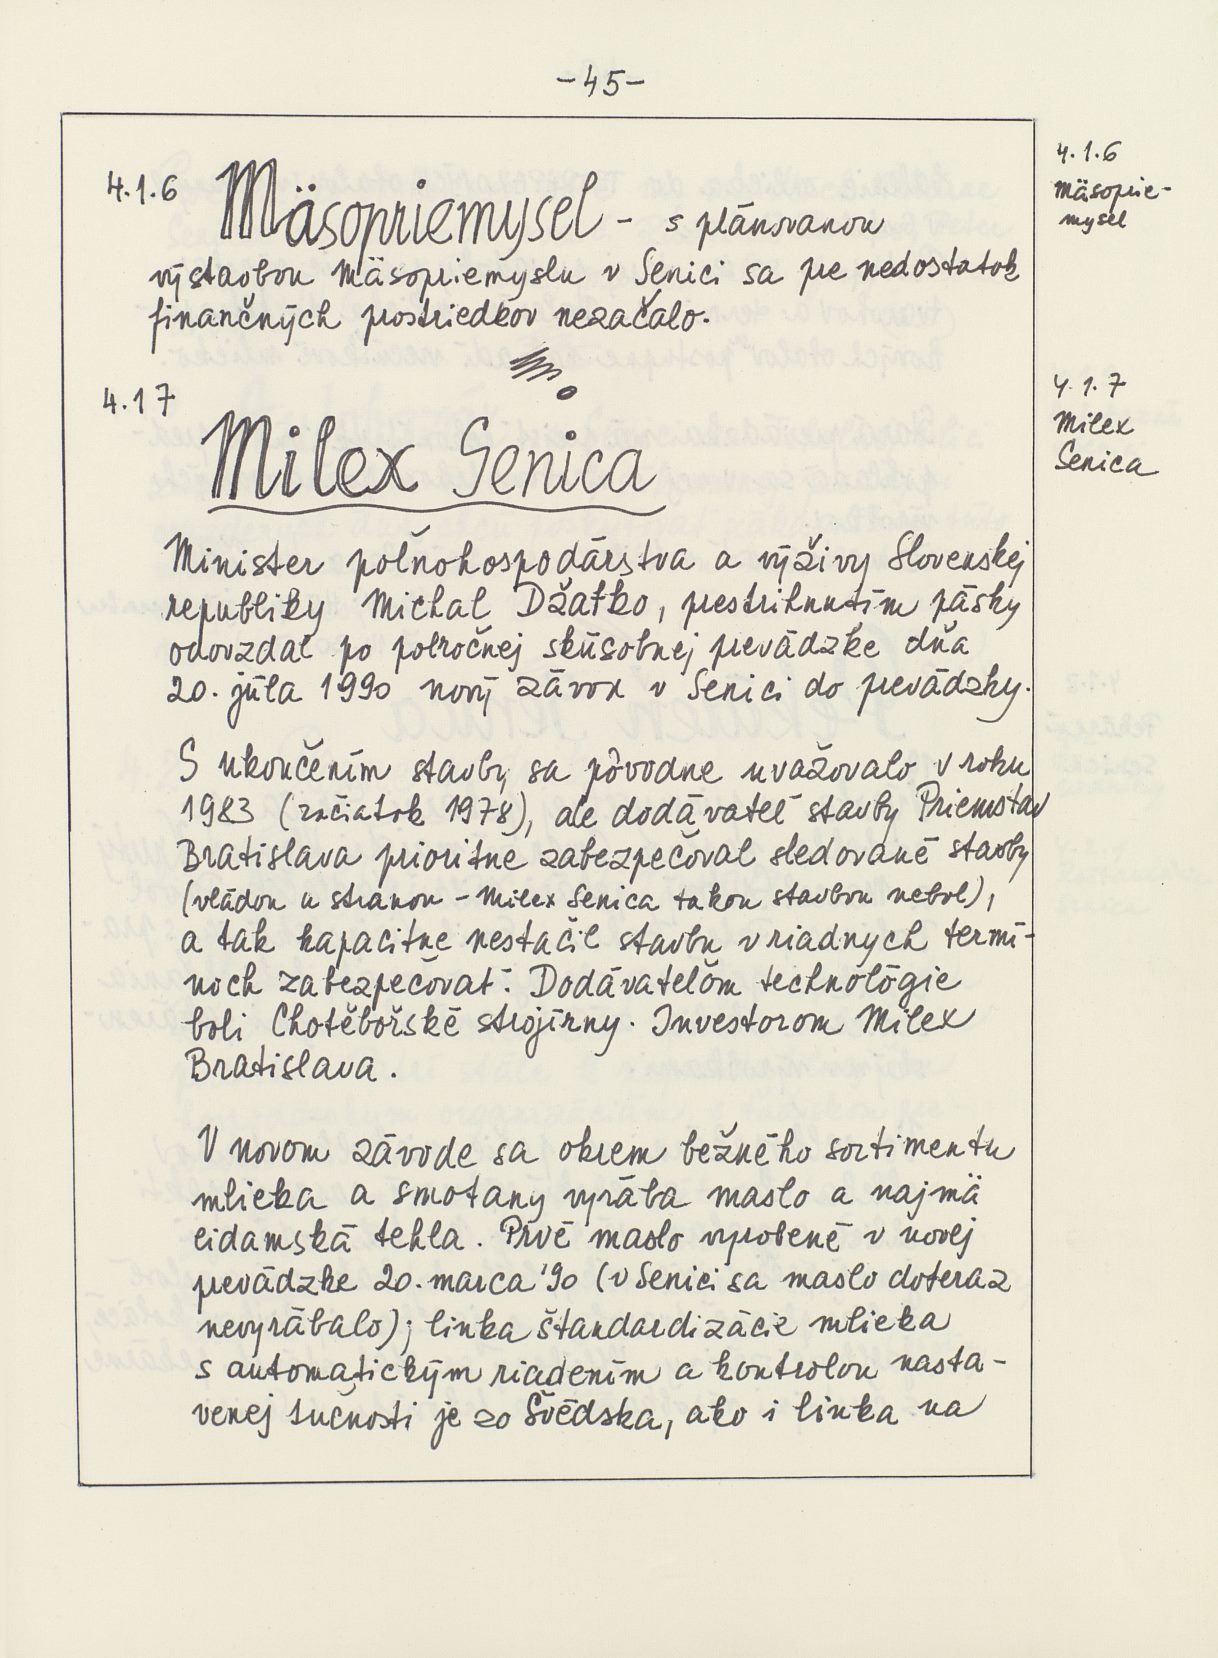 -45-
4.1.6 Mäsopriemysel - s plánovanou
výstavbou Mäsopriemyslu v Senici sa pre nedostatok
finančných prostriedkov nezačalo.
4.17
Milex Senica
Minister poľnohospodárstva a výživy Slovenskej
republiky Michal Džatko, prestrihnutím pásky
odovzdal po polročnej skúsobnej prevádzke dňa
20. júla 1990 nový závod v Senici do prevádzky.
S ukončením stavby sa pôvodne uvažovalo v roku
1983 (začiatok 1978), ale dodávateľ stavby Priemstav
Bratislava prioritne zabezpečoval sledované stavby
(vládou a stranou - Milex Senica takou stavbou nebol),
a tak kapacitne nestačil stavbu v riadnych termí-
noch zabezpečovať. Dodávateľom technológie
boli Chotěbořské strojírny. Investorom Milex
Bratislava.
V novom závode sa okrem bežného sortimentu
mlieka a smotany vyrába maslo a najmä
eidamská tehla. Prvé maslo vyrobené v novej
prevádzke 20. marca '90 (v Senici sa maslo doteraz
nevyrábalo); linka štandardizácie mlieka
s automatickým riadením a kontrolou nasta-
venej tučnosti je zo Švédska, ako i linka na
4.1.6
Mäsoprie-
mysel
4.1.7
Milex
Senica